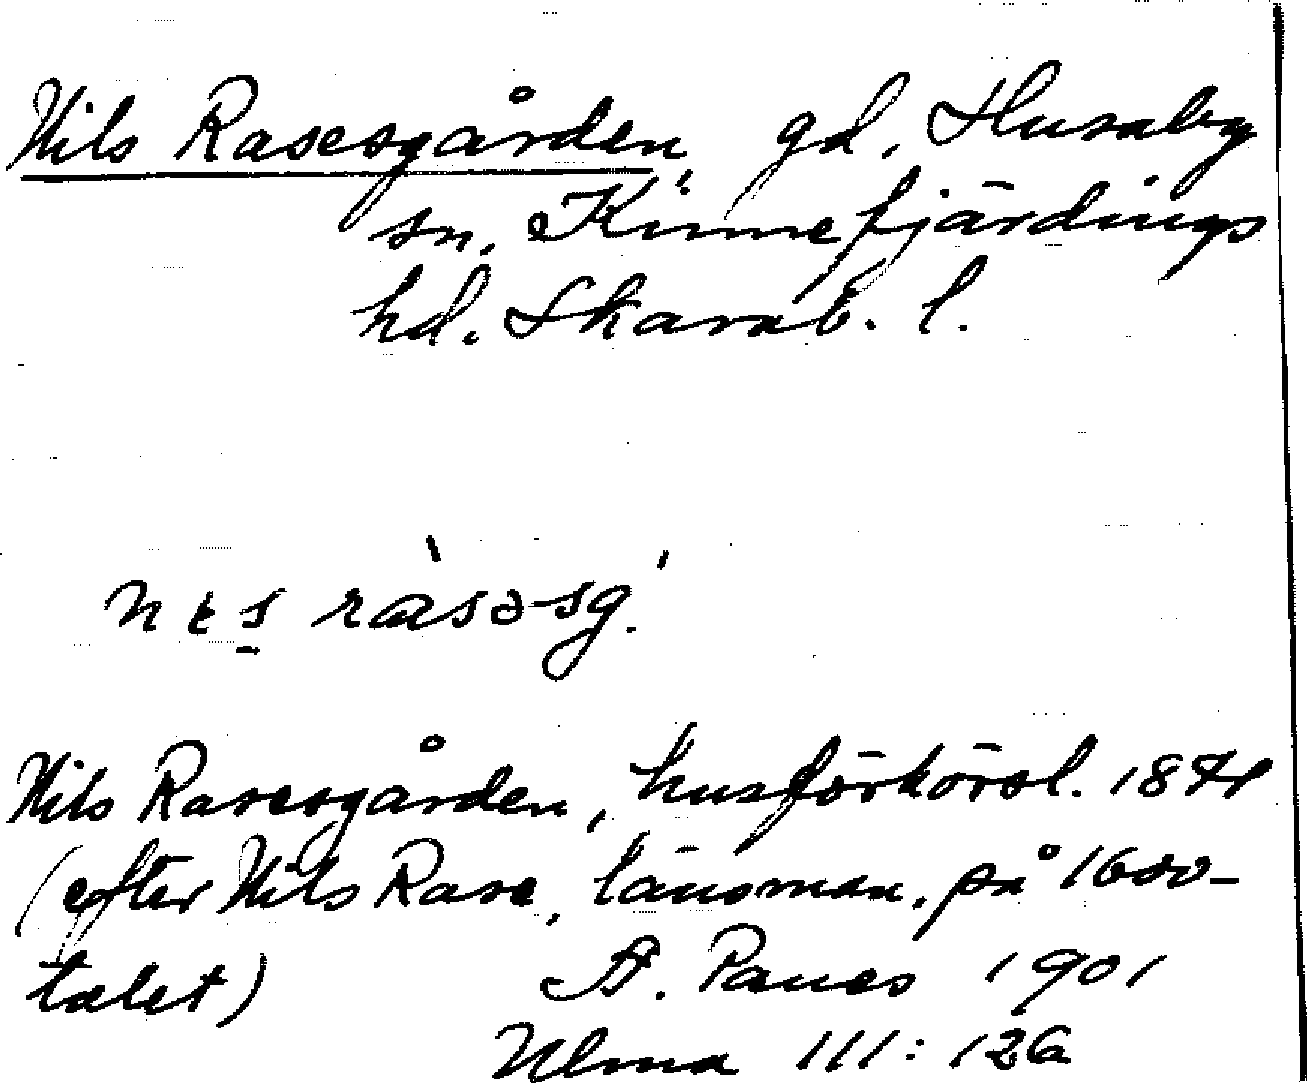 Nils Rasesgården, gd, Husaby
sn, Kinnefjärdings
hd. Skarab. l.
Nils Rasesgården, husförhörsl. 1874
(efter Nils Rase, länsman, på 1600-
talet) A. Paues 1901
Ulma 111:126